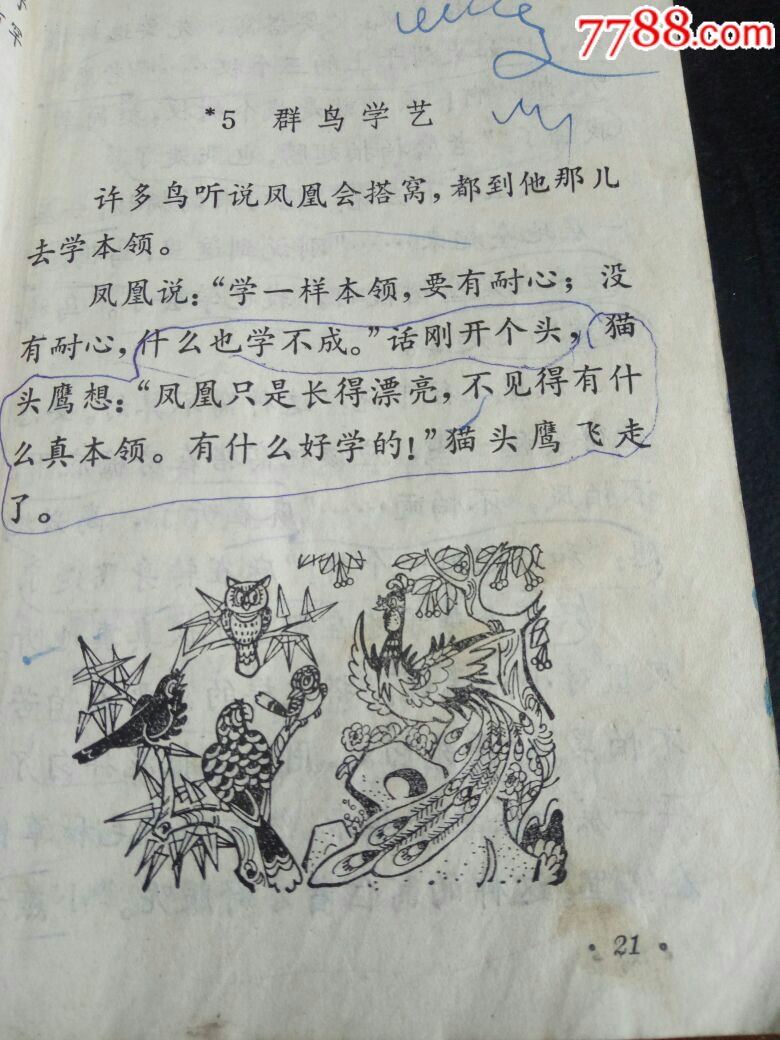 7788.com
*5 群鸟学艺
许多鸟听说凤凰会搭窝，都到他那儿
去学本领。
凤凰说：“学一样本领，要有耐心；没
有耐心，什么也学不成。”话刚开个头，猫
头鹰想：“凤凰只是长得漂亮，不见得有什
么真本领。有什么好学的！”猫头鹰飞走
了。
· 21 ·